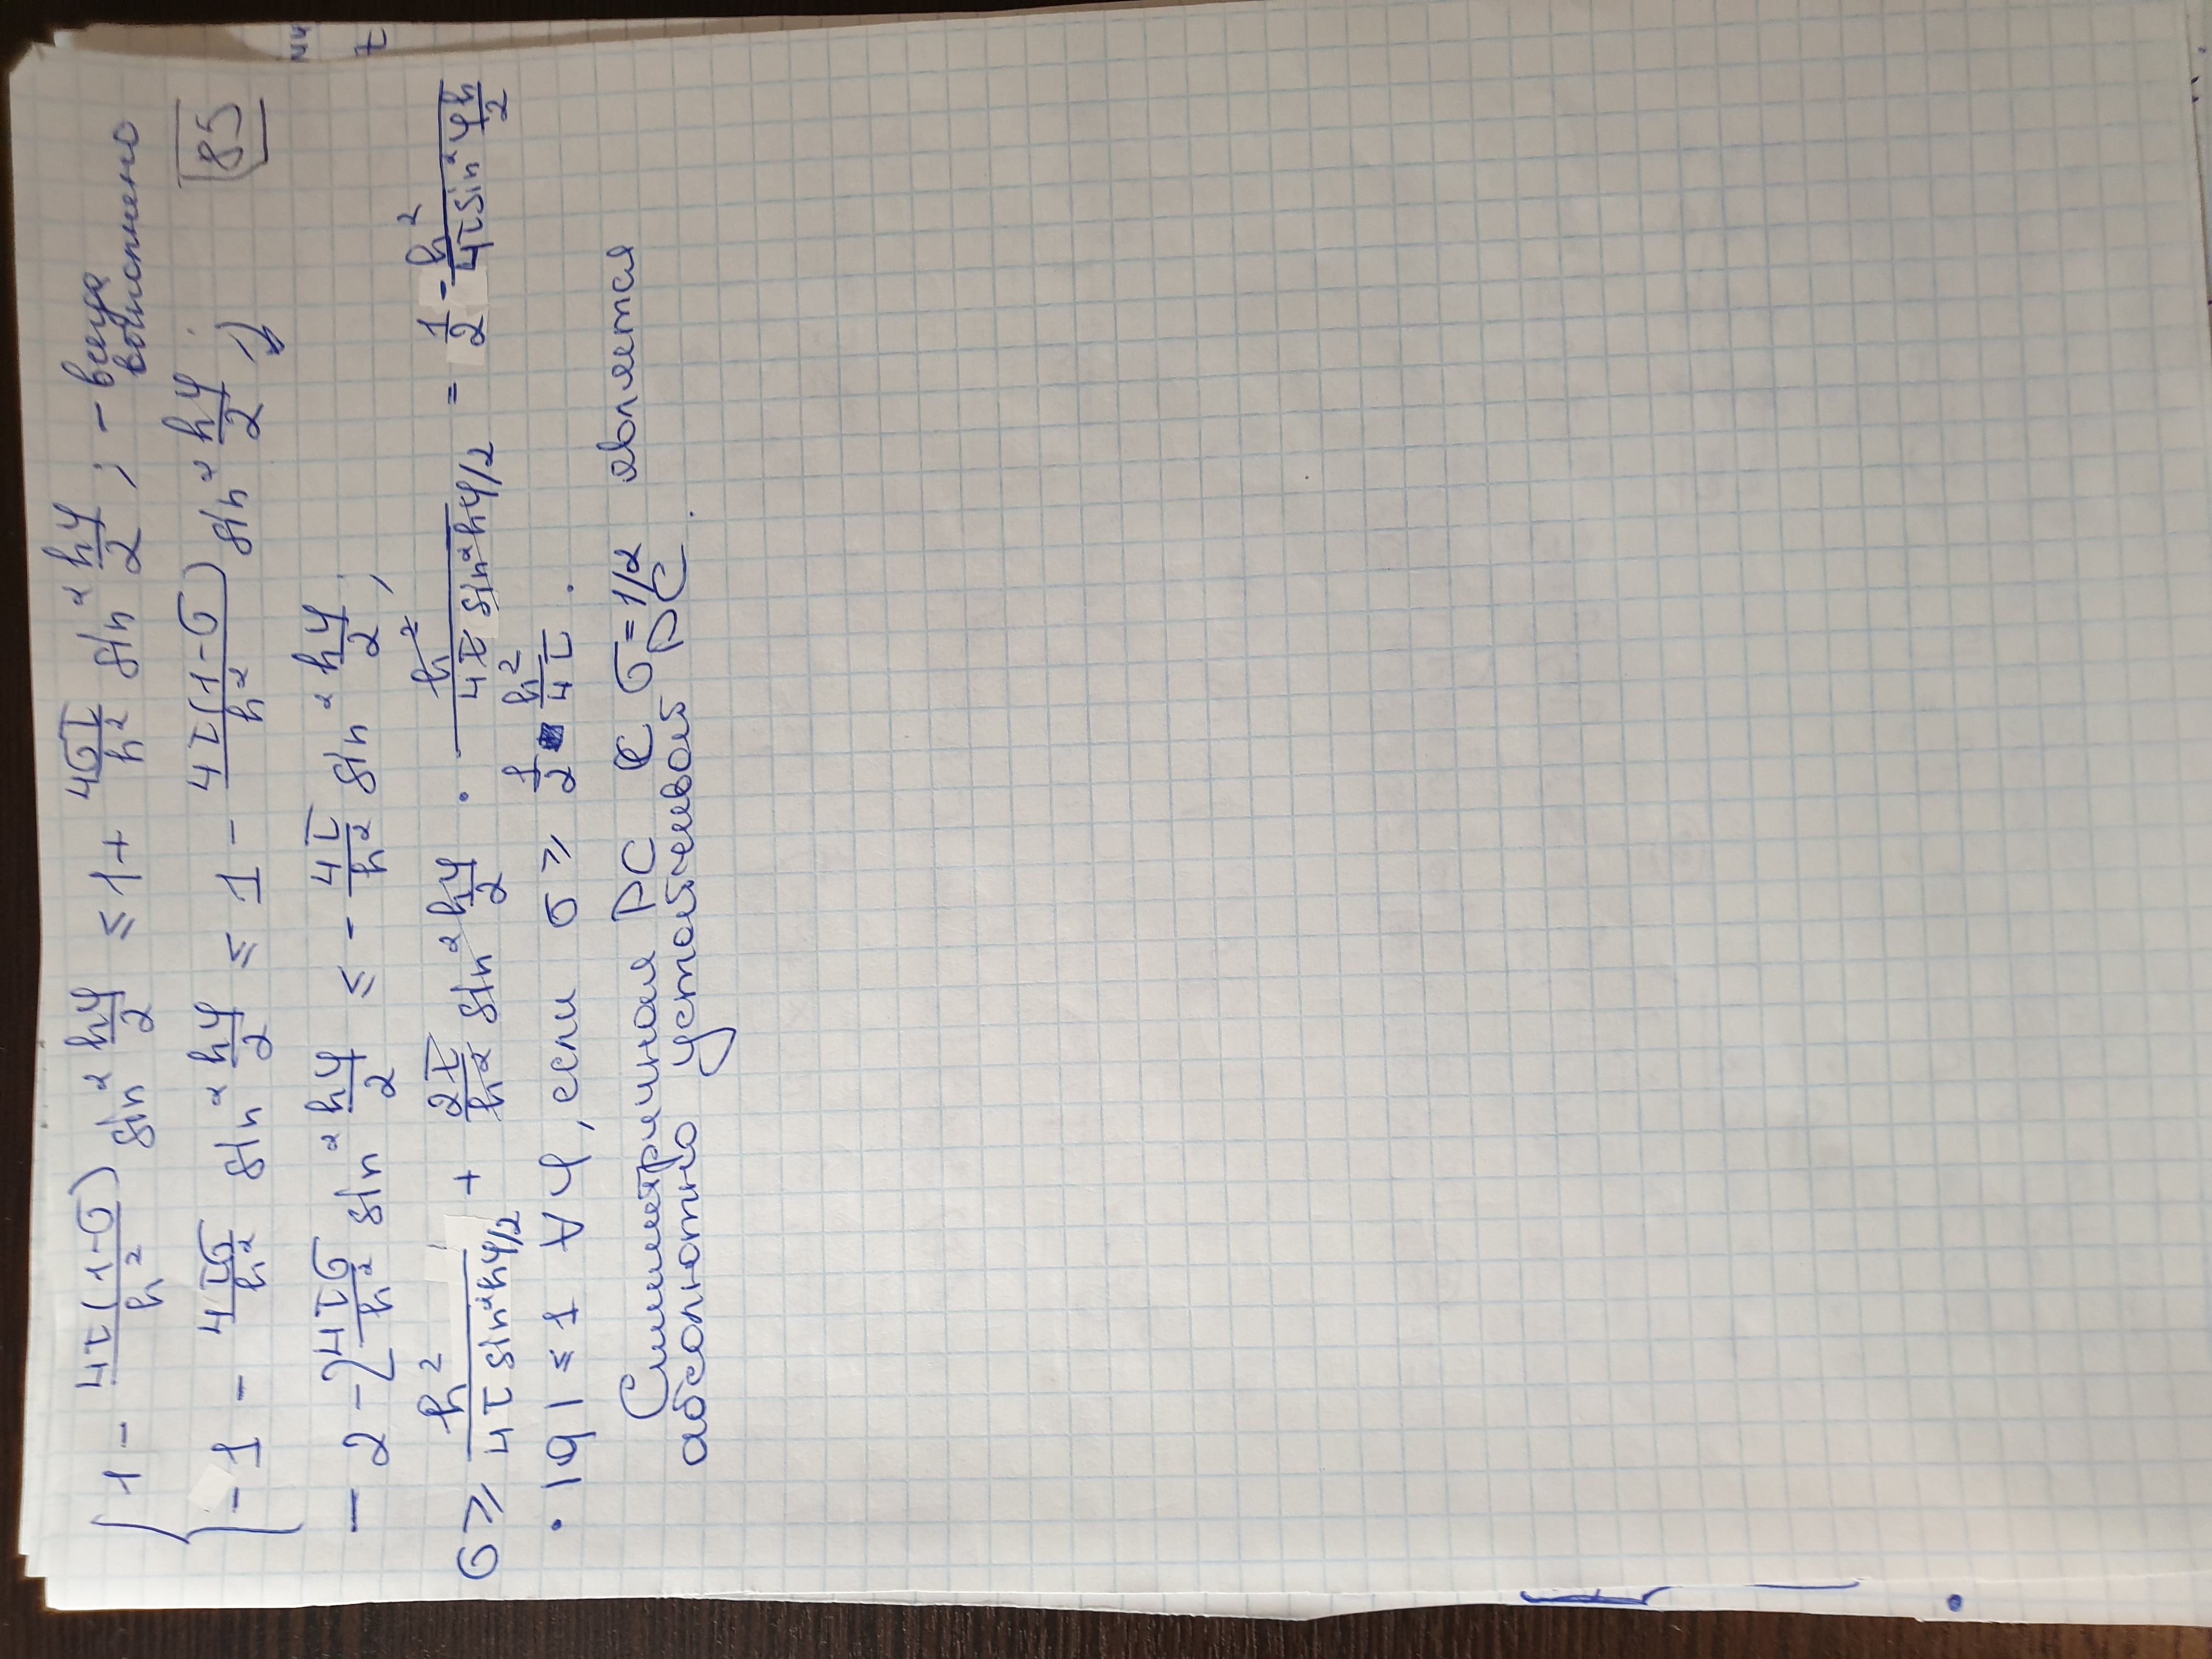 { 1 - 4τ(1-σ)/h² sin² hφ/2 ≤ 1 + 4στ/h² sin² hφ/2 ; - всегда выполнено
-1 - 4τσ/h² sin² hφ/2 ≤ 1 - 4τ(1-σ)/h² sin² hφ/2 ; ⇒
85
-2 - 2 4τσ/h² sin² hφ/2 ≤ - 4τ/h² sin² hφ/2 ;
σ ≥ h²/(4τ sin² hφ/2) + 2τ/h² sin² hφ/2 · h²/(4τ sin² hφ/2) = 1/2 - h²/(4τ sin² φh/2)
· |q| ≤ 1 ∀φ, если σ ≥ 1/2 - h²/4τ .
Симметричная РС с σ = 1/2 является
абсолютно устойчивой РС .